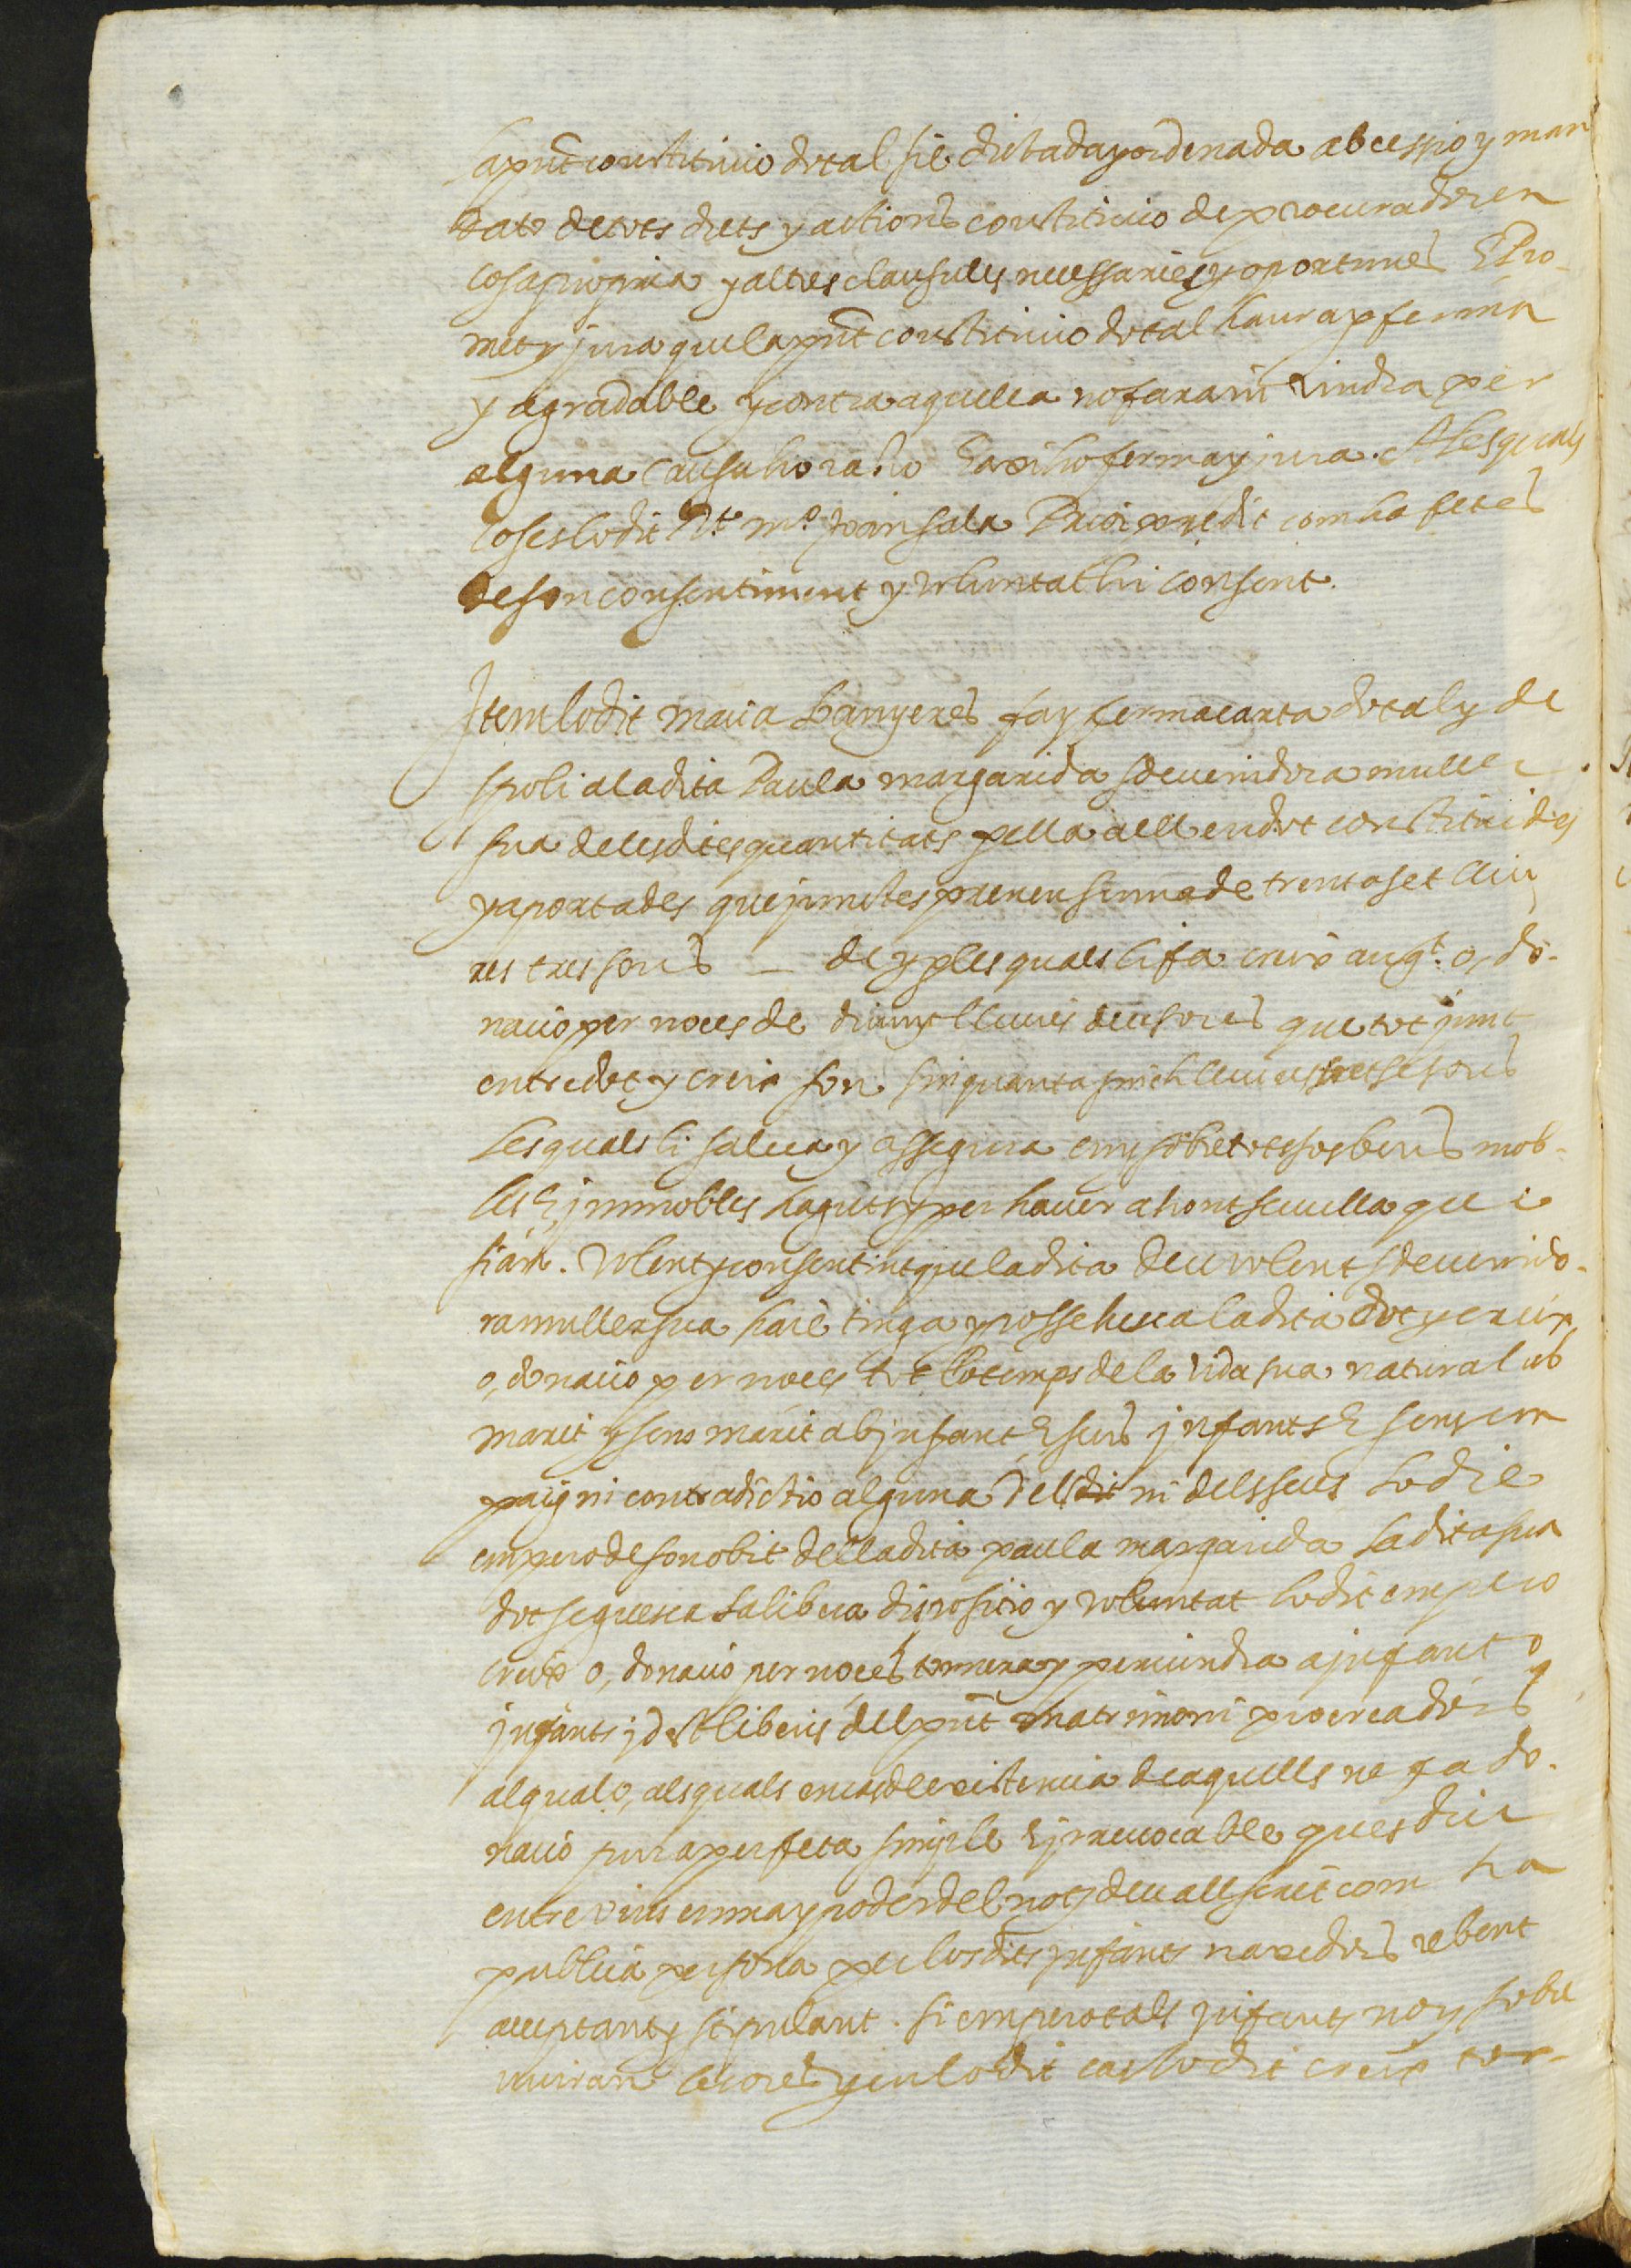 la pñt constitucio dotal sie dictada y ordenada ab cessio y man
dato de tots drets y actions constitucio de procurador en
cosa propria y altres clausules necessaries y oportunes E Pro-
met y jura que la pñt constitucio dotal haura p ferma
y agradable y contra aquella no fara ni vindra per
alguna causa ho raho E axi ho ferma y jura. A les quals
coses lo dit Rt. mo. Joan sala Prior predit com ha fetes
de son consentiment y voluntat hi consent.
Item lo dit Macia Banyeres fa y ferma carta dotal y de
spoli a la dita Paula margarida sdevenidora muller
sua de les dites quantitats p ella a ell en dot constituides
y aportades que juntes prenen suma de trenta set lliu
res tres sous _ de y p les quals li fa creix augt. o, do-
nacio per noces de divuyt lliures deu sous que tot junt
entre dot y creix son sinquanta sinch lliures tretse sous
Les quals li salva y assegura en y sobre tots sos bens mob-
les E immobles haguts y per haver ahont se vulla que e
sian. Volent y consentint que la dita deu volent sdevenido-
ra muller sua haie tinga y possehesca la dita dot y creix,
o, donacio per noces tot lo temps de la vida sua natural ab
marit y sens marit ab infant E sens infants E sens em
paig ni contradictio alguna dell dit ni dels seus Lo die
empero de son obit de la dita paula margarida La dita sua
dot seguesca sa libera disposicio y voluntat lo dit empero
creix o, donacio per noces tornara y pervindra a infant o
infants id est liberis del pñt matrimoni procreadors
al qual o, als quals en cas de existencia de aquells ne fa do-
nacio pura perfeta simple E irrevocable ques diu
entre vius en ma y poder del noty devall scrit com ha
publica persona per los dits infants naxedors rebent
acceptant y stipulant. Si empero tals infants noy sobre
viuran lesores y en lo dit cas lo dit creix tor-